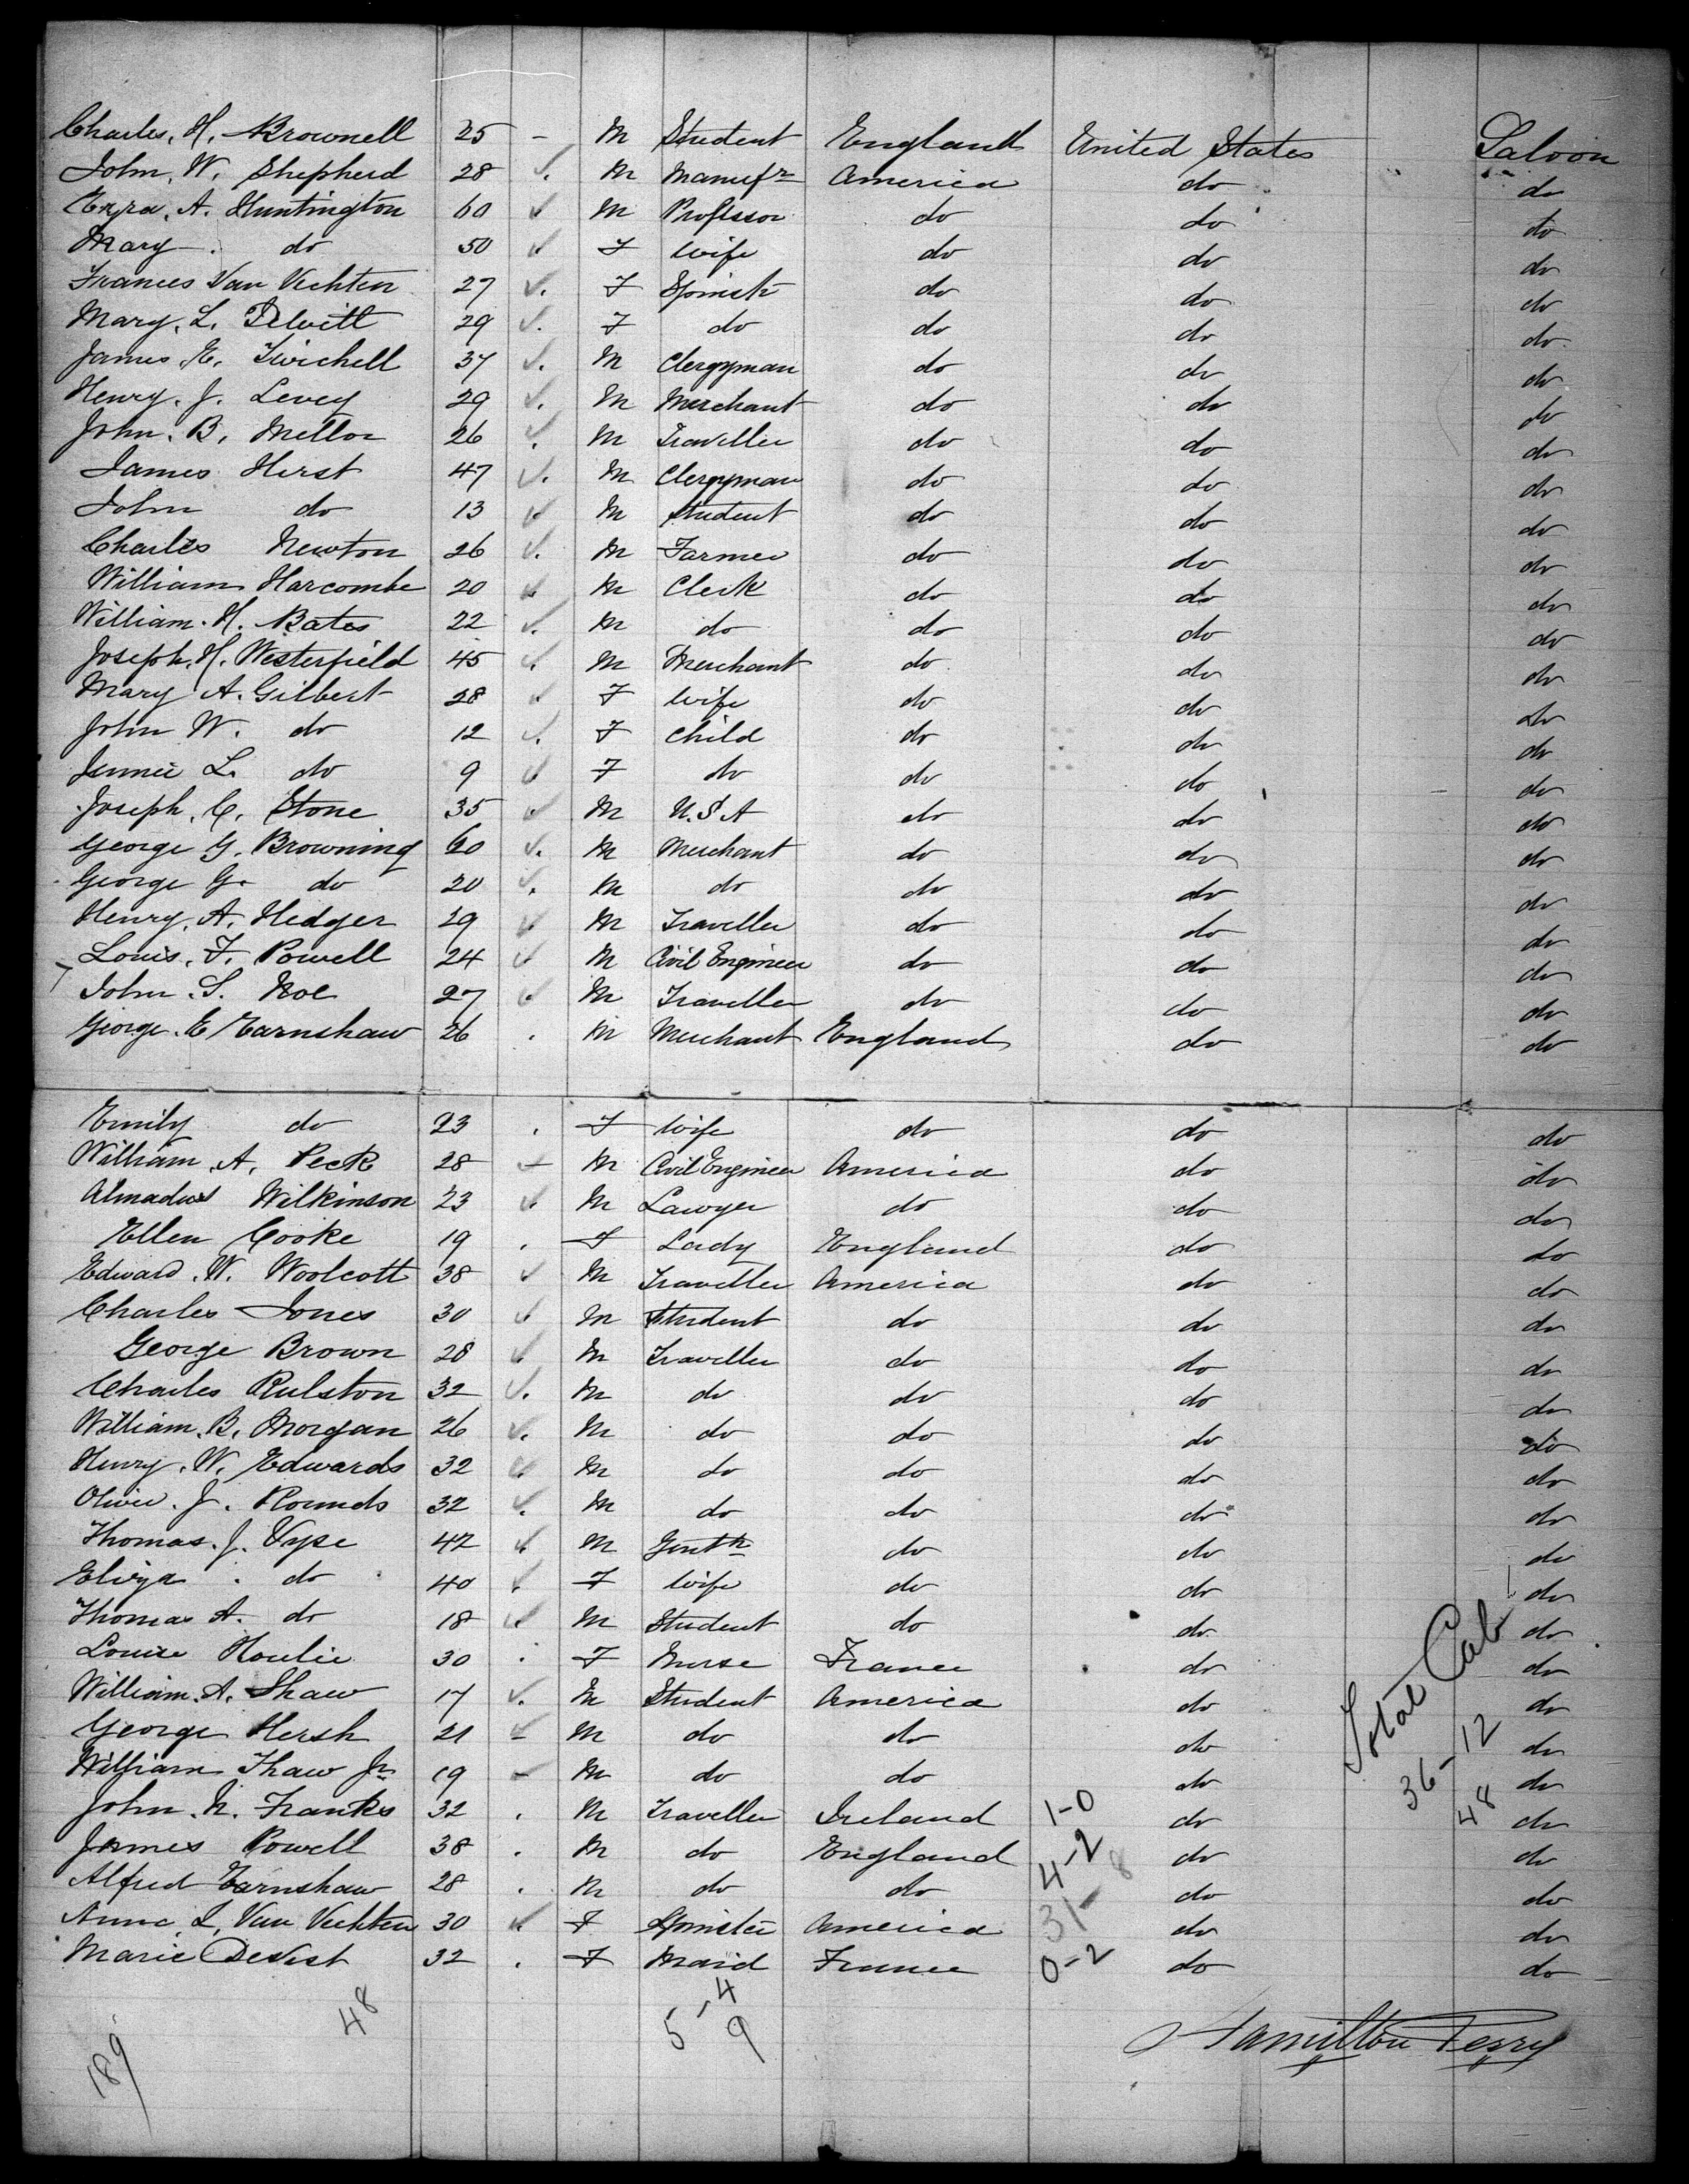 Charles. H. Brownell 25 - M Student England United States Saloon
John. W. Shepherd 28 M Manufr America do do
Ezra. A. Huntington 60 M Professor do do do
Mary do 50 F Wife do do do
Frances Van Vechten 27 F Spinstr do do do
Mary. L. Dewitt 29 F do do do do
James. E. Twichell 37 M Clergyman do do do
Henry. J. Levey 29 M Merchant do do do
John. B. Mellor 26 M Traveller do do do
James Herst 47 M Clergyman do do do
John do 13 M Student do do do
Charles Newton 26 M Farmer do do do
William Harcombe 20 M Clerk do do do
William. H. Bates 22 M do do do do
Joseph. H. Westerfield 45 M Merchant do do do
Mary A. Gilbert 28 F Wife do do do
John W. do 12 F Child do do do
Jennie L. do 9 F do do do do
Joseph. C. Stone 35 M U.S.A do do do
George G. Browning 60 M Merchant do do do
George G. do 20 M do do do do
Henry. A. Hedger 29 M Traveller do do do
Louis. F. Powell 24 M Civil Engineer do do do
John. S. Noe 27 M Traveller do do do
George. E Earnshaw 26 M Merchant England do do
Emily do 23 F Wife do do do
William. A. Peck 28 M Civil Engineer America do do
Wilkinson 23 M Lawyer do do do
Ellen Cooke 19 F Lady England do do
Edward. W. Woolcott 38 M Traveller America do do
Charles Jones 30 M Student do do do
George Brown 28 M Traveller do do do
Charles Rulston 32 M do do do do
William. B. Morgan 26 M do do do do
Henry. W. Edwards 32 M do do do do
Oliver. J. Rounds 32 M do do do do
Thomas. J. Vyse 42 M Gentn do do do
Eliza do 40 F Wife do do do
Thomas A. do 18 M Student do do do
Louise Houlie 30 F Nurse France do do
William. A. Shaw 17 M Student America do do
George Hersh 21 M do do do do
William Thaw Jr 19 M do do do do
John. N. Franks 32 M Traveller Ireland do do
James Powell 38 M do England do do
Alfred Earnshaw 28 M do do do do
Anna L. Van Vechten 30 F Spinster America do do
Marie 32 F Maid France do do
Total Cab
36-12
48
1-0
4-2
31-8
0-2
48
5-4
9
189
Hamilton Perry